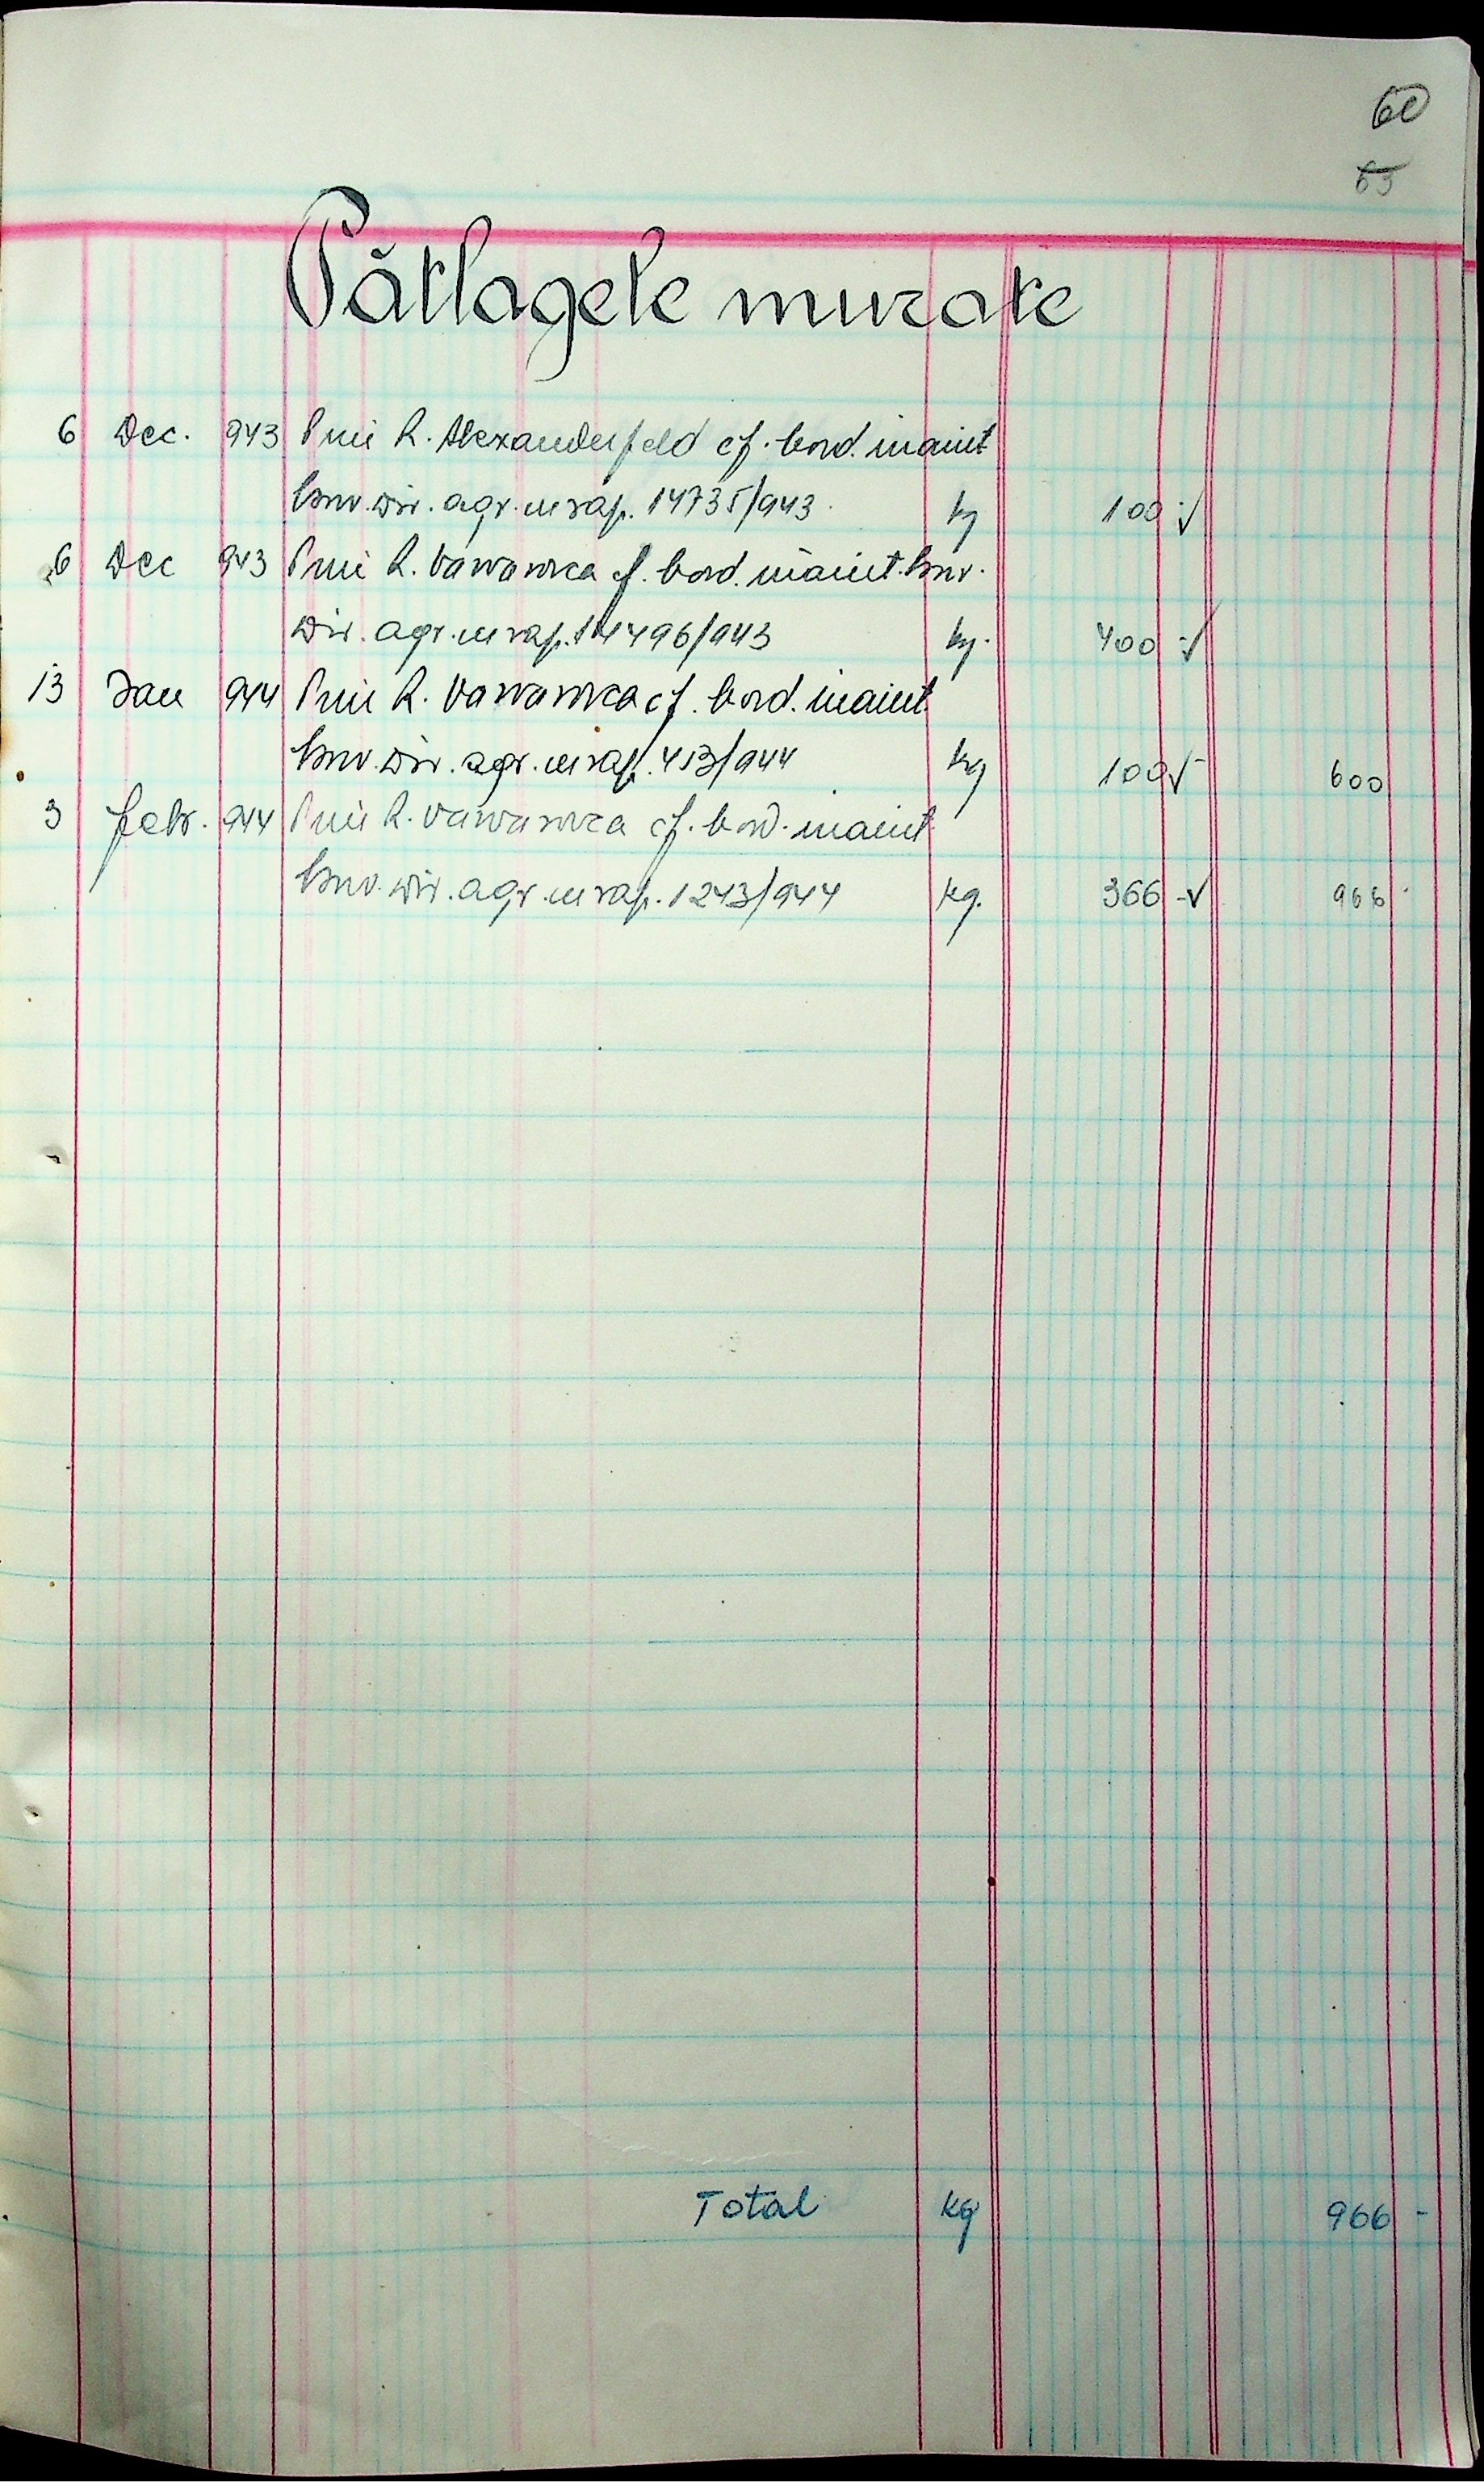 60
63
Pătlagele murate
6 Dec. 943 Prin R. Alexanderfeld cf. bord. inaint
Guv. Dir. agr. cu rap. 14735/943. kg 100 -√
6 Dec 943 Prin R. Varvarovca cf. bord. inaint. Guv.
Dir. agr. cu rap. 14496/943 kg. 400 -√
13 Jan 944 Prin R. Varvarovca cf. bord. inaint
Guv. Dir. agr. cu rap. 413/944 kg 100 √- 600
3 febr. 944 Prin R. Varvarovca cf. bord. inaint
Guv. Dir. agr. cu rap. 1243/944 kg. 366 -√ 966
Total kg 966 -